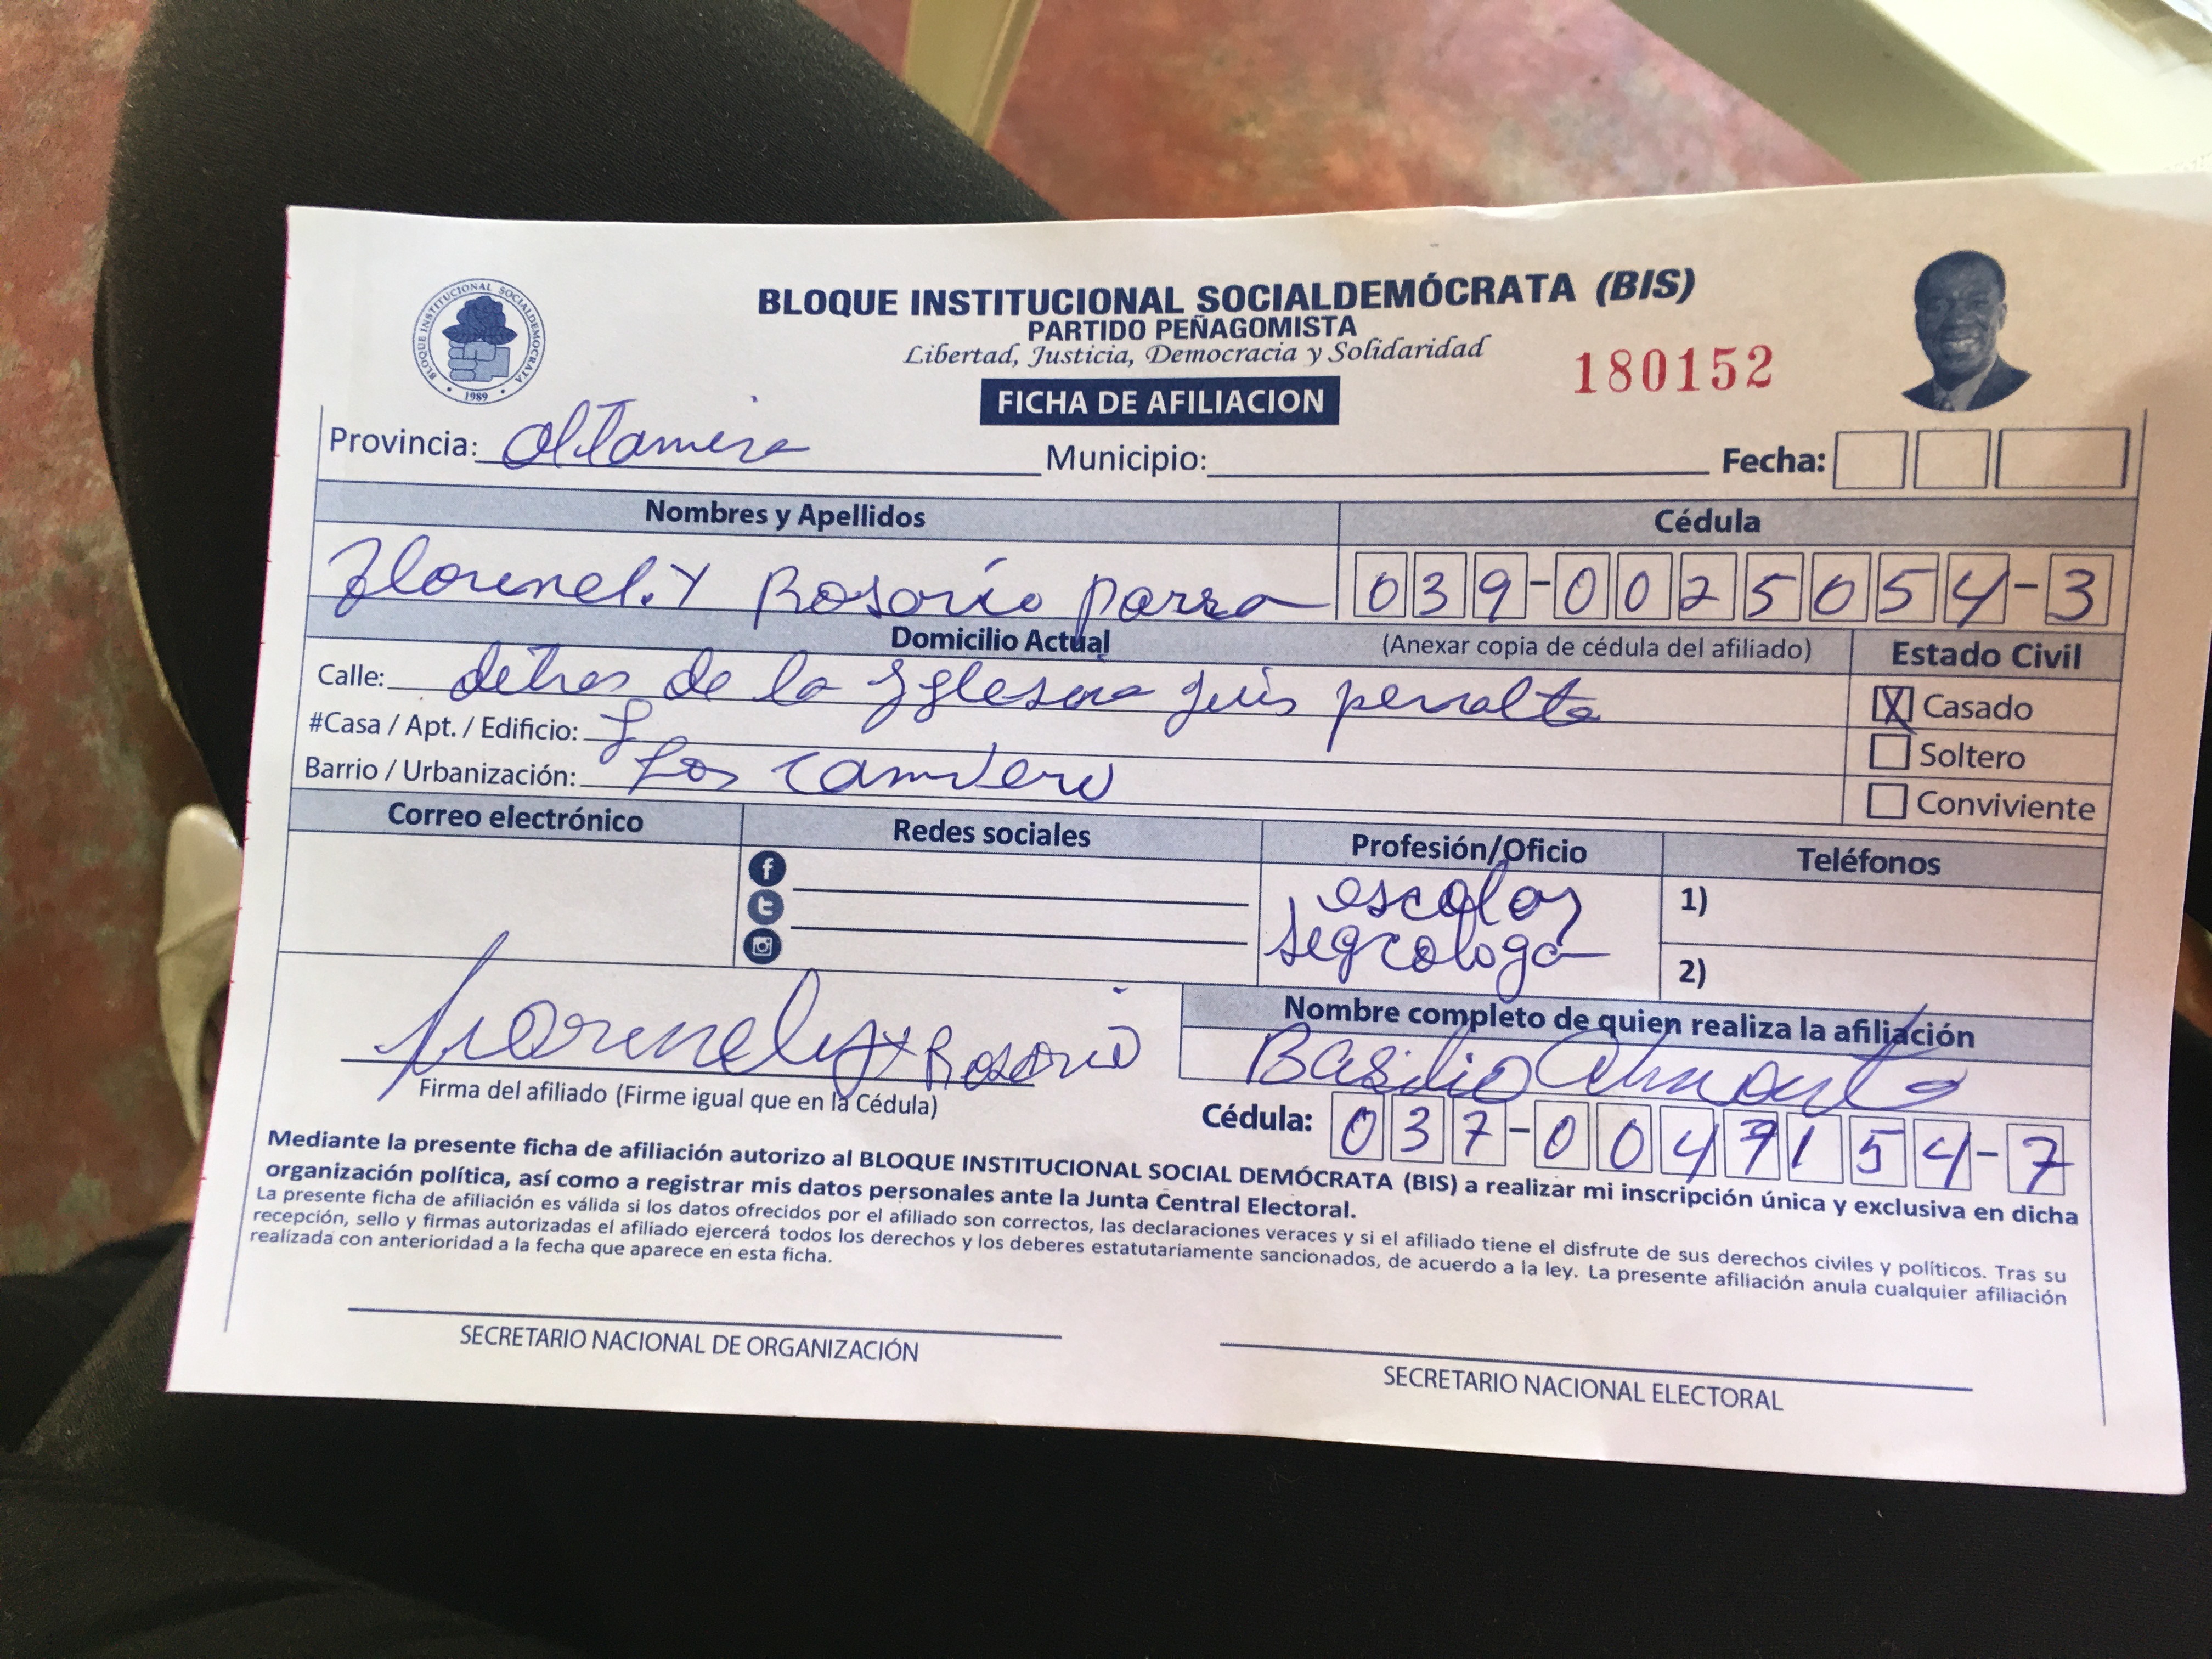 BLOQUE INSTITUCIONAL SOCIALDEMÓCRATA (BIS)
PARTIDO PEÑAGOMISTA
Libertad, Justicia, Democracia y Solidaridad
180152
FICHA DE AFILIACION
BLOQUE INSTITUCIONAL SOCIALDEMOCRATA
1989
Provincia: Altamira Municipio: Fecha:
Nombres y Apellidos Cédula
Rosario Parra 039-0025054-3
Domicilio Actual (Anexar copia de cédula del afiliado) Estado Civil
Calle: detras de la peralta
X Casado
#Casa / Apt. / Edificio:
Soltero
Barrio / Urbanización: Los
Conviviente
Correo electrónico Redes sociales Profesión/Oficio Teléfonos
escolar
1)
2)
Rosario
Firma del afiliado (Firme igual que en la Cédula)
Nombre completo de quien realiza la afiliación
Basilio
Cédula: 037-0047154-7
Mediante la presente ficha de afiliación autorizo al BLOQUE INSTITUCIONAL SOCIAL DEMÓCRATA (BIS) a realizar mi inscripción única y exclusiva en dicha
organización política, así como a registrar mis datos personales ante la Junta Central Electoral.
La presente ficha de afiliación es válida si los datos ofrecidos por el afiliado son correctos, las declaraciones veraces y si el afiliado tiene el disfrute de sus derechos civiles y políticos. Tras su
recepción, sello y firmas autorizadas el afiliado ejercerá todos los derechos y los deberes estatutariamente sancionados, de acuerdo a la ley. La presente afiliación anula cualquier afiliación
realizada con anterioridad a la fecha que aparece en esta ficha.
SECRETARIO NACIONAL DE ORGANIZACIÓN
SECRETARIO NACIONAL ELECTORAL